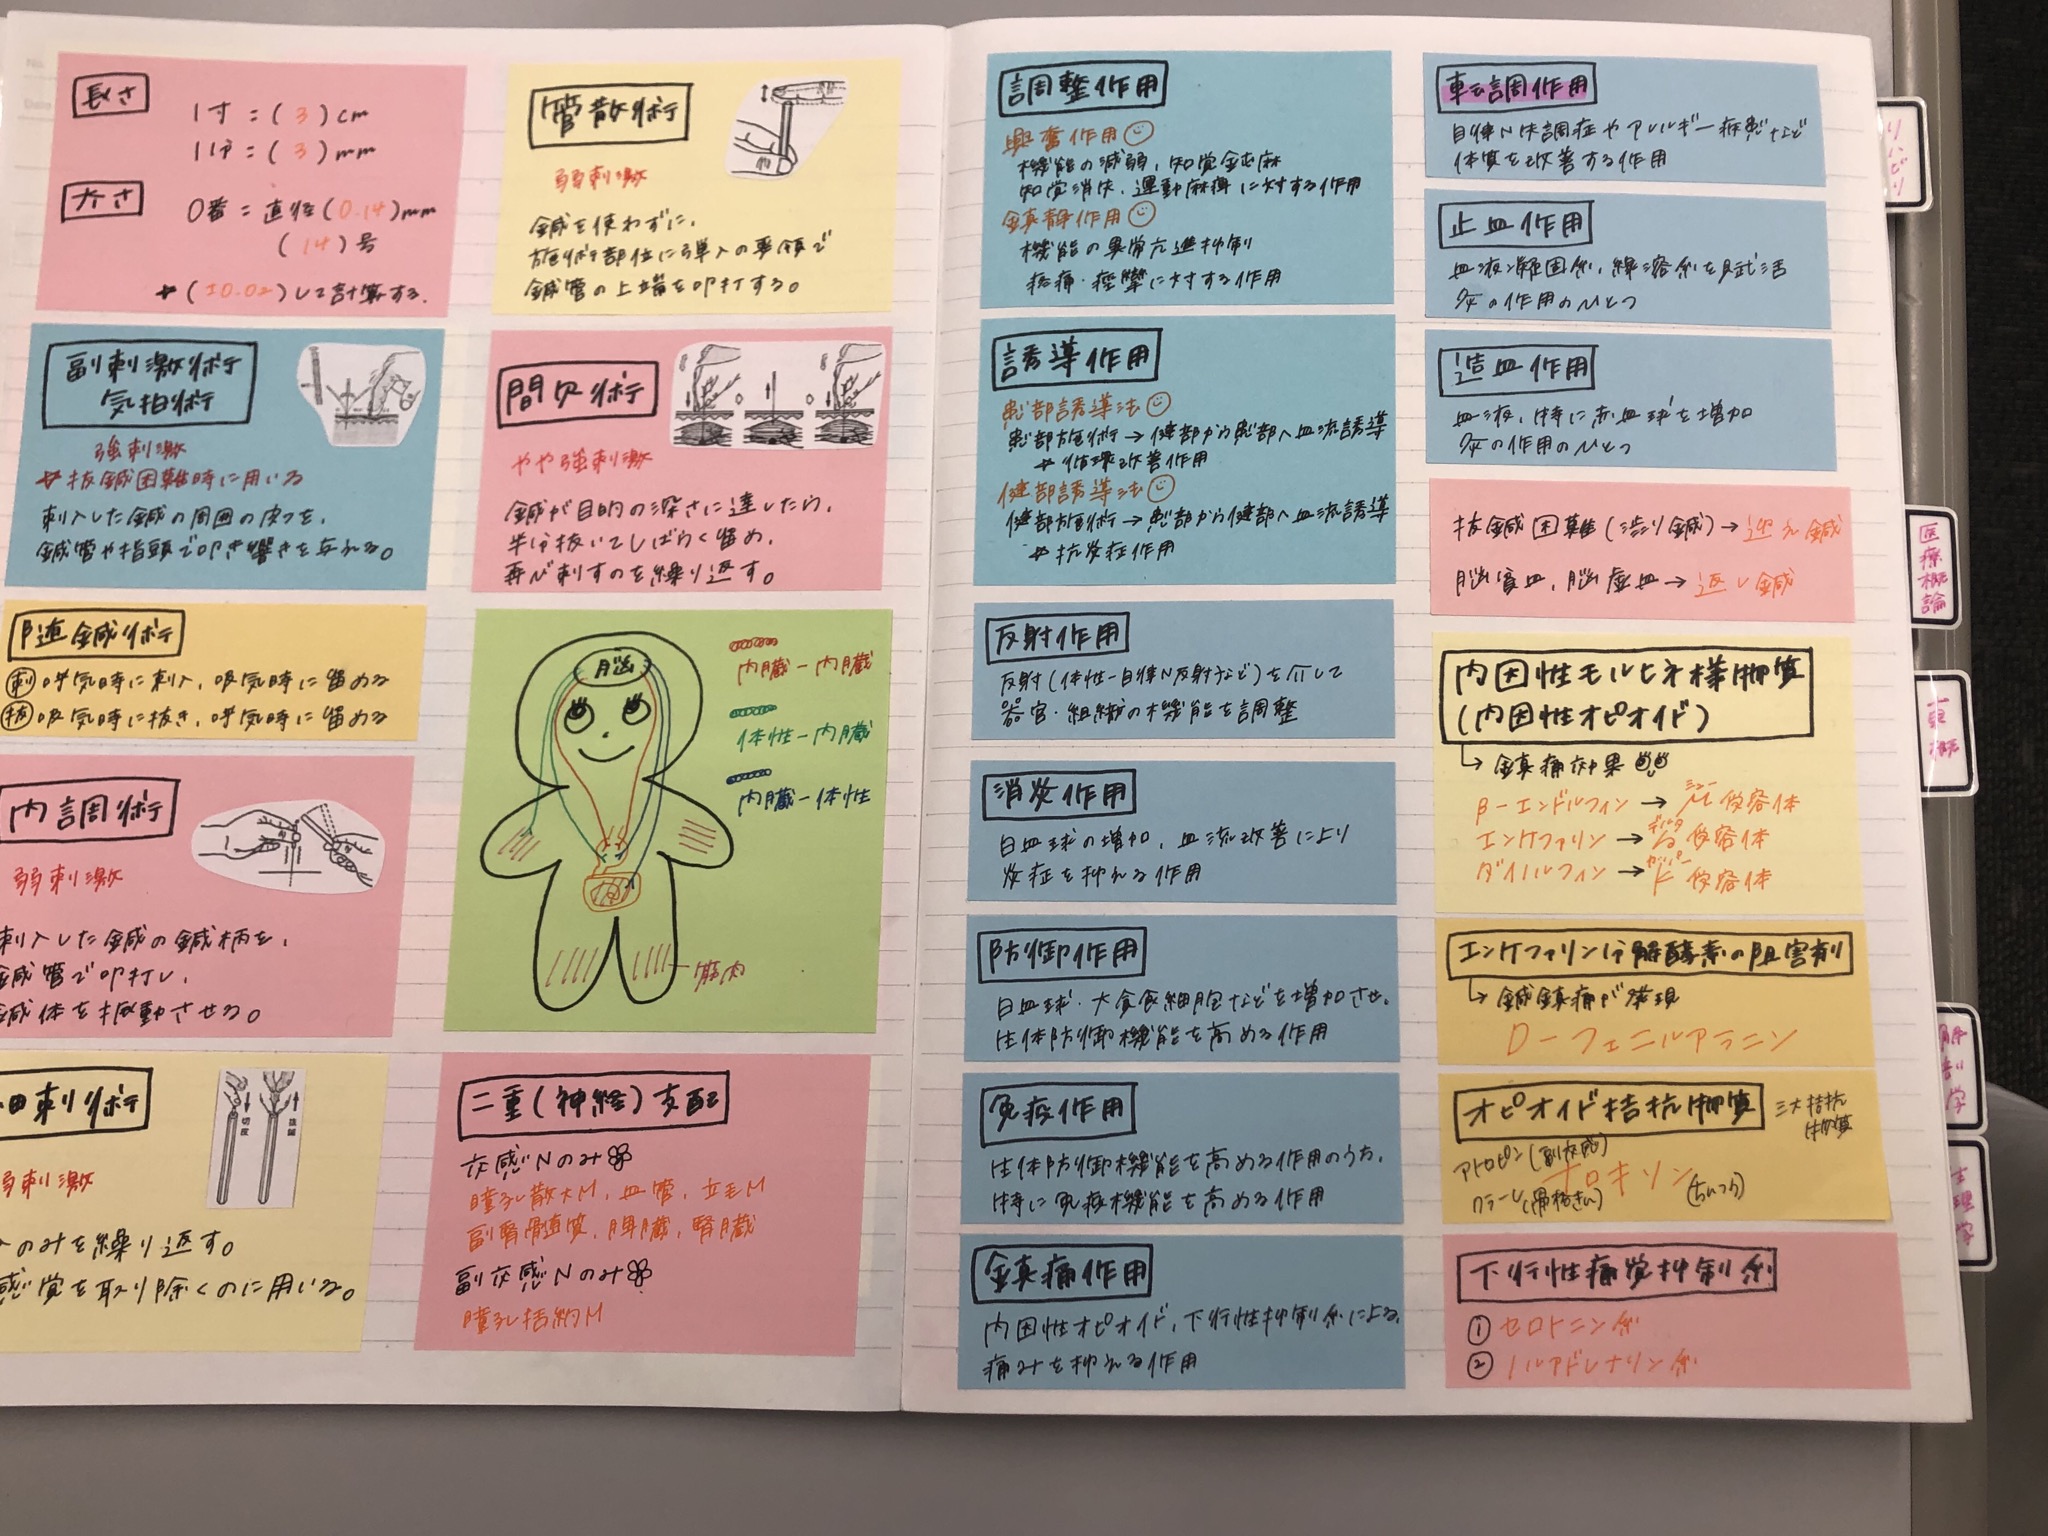 長さ
1寸=(3)cm
1分=(3)mm
太さ
0番=直径(0.14)mm
(14)号
(±0.02)して計算する.
副刺激術
気拍術
強刺激
抜鍼困難時に用いる
刺入した鍼の周囲の皮フを、
鍼管や指頭で叩き響きを与える。
随鍼術
刺 呼気時に刺入、吸気時に留める
抜 吸気時に抜き、呼気時に留める
内調術
弱刺激
刺入した鍼の鍼柄を、
鍼管で叩打し、
鍼体を振動させる。
細刺術
弱刺激
のみを繰り返す。
感覚を取り除くのに用いる。
管散術
弱刺激
鍼を使わずに、
施術部位に弾入の要領で
鍼管の上端を叩打する。
間欠術
やや強刺激
鍼が目的の深さに達したら、
半分抜いてしばらく留め、
再び刺すのを繰り返す。
脳
内臓ー内臓
体性ー内臓
内臓ー体性
筋肉
二重(神経)支配
交感Nのみ
瞳孔散大M, 血管, 立毛M
副腎髄質, 脾臓, 腎臓
副交感Nのみ
瞳孔括約M
調整作用
興奮作用
機能の減弱、知覚鈍麻
知覚消失、運動麻痺に対する作用
鎮静作用
機能の異常亢進抑制
疼痛・痙攣に対する作用
誘導作用
患部誘導法
患部施術→健部から患部へ血流誘導
循環改善作用
健部誘導法
健部施術→患部から健部へ血流誘導
抗炎症作用
反射作用
反射(体性-自律N反射など)を介して
器官・組織の機能を調整
消炎作用
白血球の増加、血流改善により
炎症を抑える作用
防御作用
白血球・大食食細胞などを増加させ、
生体防御機能を高める作用
免疫作用
生体防御機能を高める作用のうち、
特に免疫機能を高める作用
鎮痛作用
内因性オピオイド、下行性抑制系による、
痛みを抑える作用
転調作用
自律N失調症やアレルギー疾患など
体質を改善する作用
止血作用
血液凝固系、線溶系を賦活
灸の作用のひとつ
造血作用
血液、特に赤血球を増加
灸の作用のひとつ
抜鍼困難(渋り鍼)→迎え鍼
脳貧血、脳虚血→返し鍼
内因性モルヒネ様物質
(内因性オピオイド)
鎮痛効果
β-エンドルフィン→μ受容体
ミュー
エンケファリン→δ受容体
デルタ
ダイノルフィン→κ受容体
カッパー
エンケファリン分解酵素の阻害剤
鍼鎮痛が発現
D-フェニルアラニン
オピオイド拮抗物質
三大拮抗
物質
アトロピン(副交感)
ナロキソン
クラーレ(骨格きん)
(ちんつう)
下行性痛覚抑制系
①セロトニン系
②ノルアドレナリン系
リハビリ
医療概論
東概
解剖学
生理学